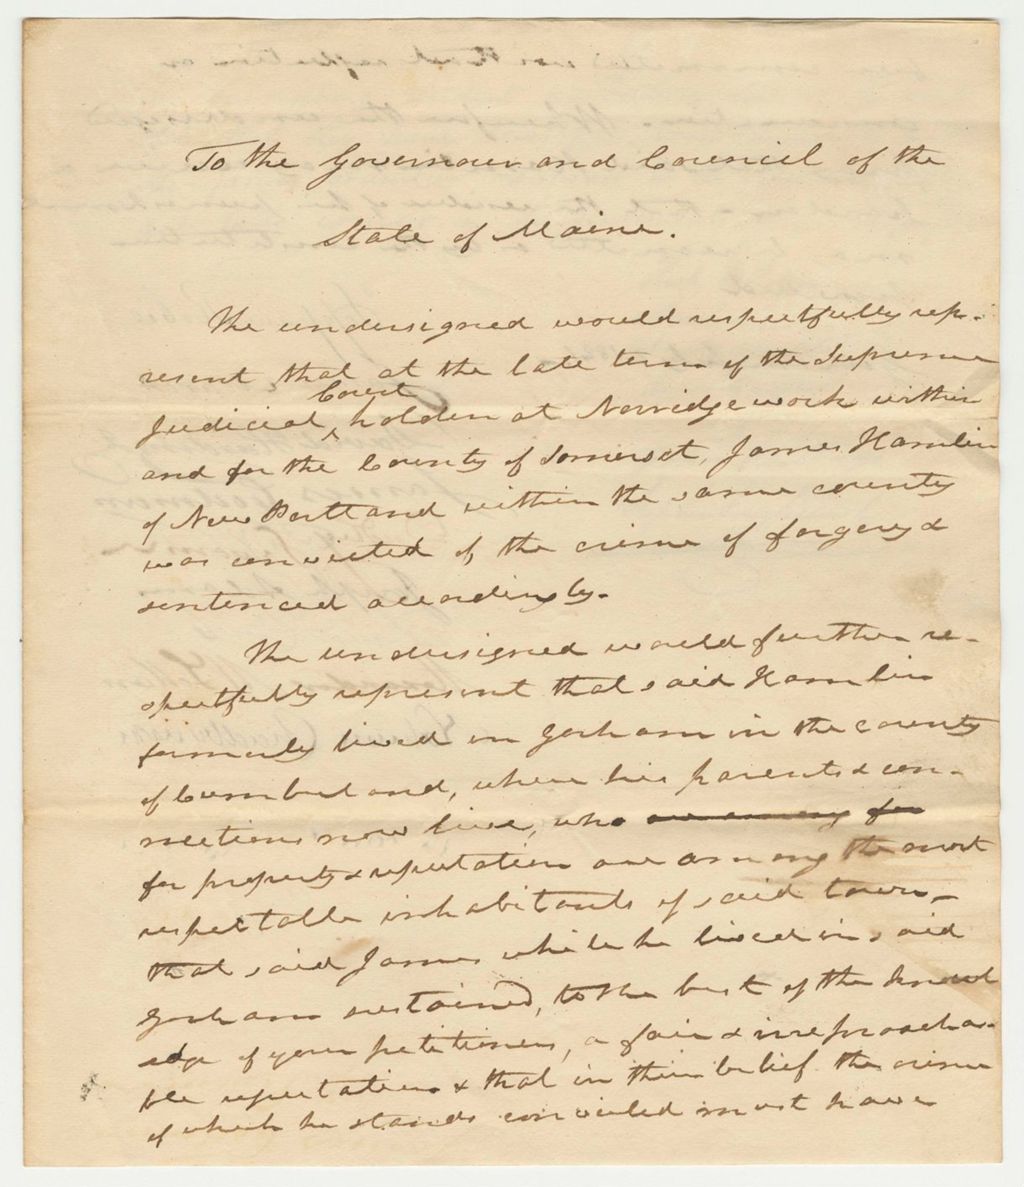 To the Governour and Council of the
State of Maine.
The undersigned would respectfully rep-
resent that at the late term of the Supreme
Court
Judicial ^ holden at Norridgewock within
and for the County of Somerset, James Hamlin
of New Portland within the same county
was convicted of the crime of forgery &
sentenced accordingly.
The undersigned would further re-
spectfully represent that said Hamlin
formerly lived in Gorham in the county
of Cumberland, where his parents & con-
nections now live, who are among for
for property & reputation are among the most
respectable inhabitants of said town,
that said James while he lived in said
Gorham sustained, to the best of the knowl
edge of your petitioners, a fair & irreproacha-
ble reputation & that in their belief the crime
of which he stands convicted must have